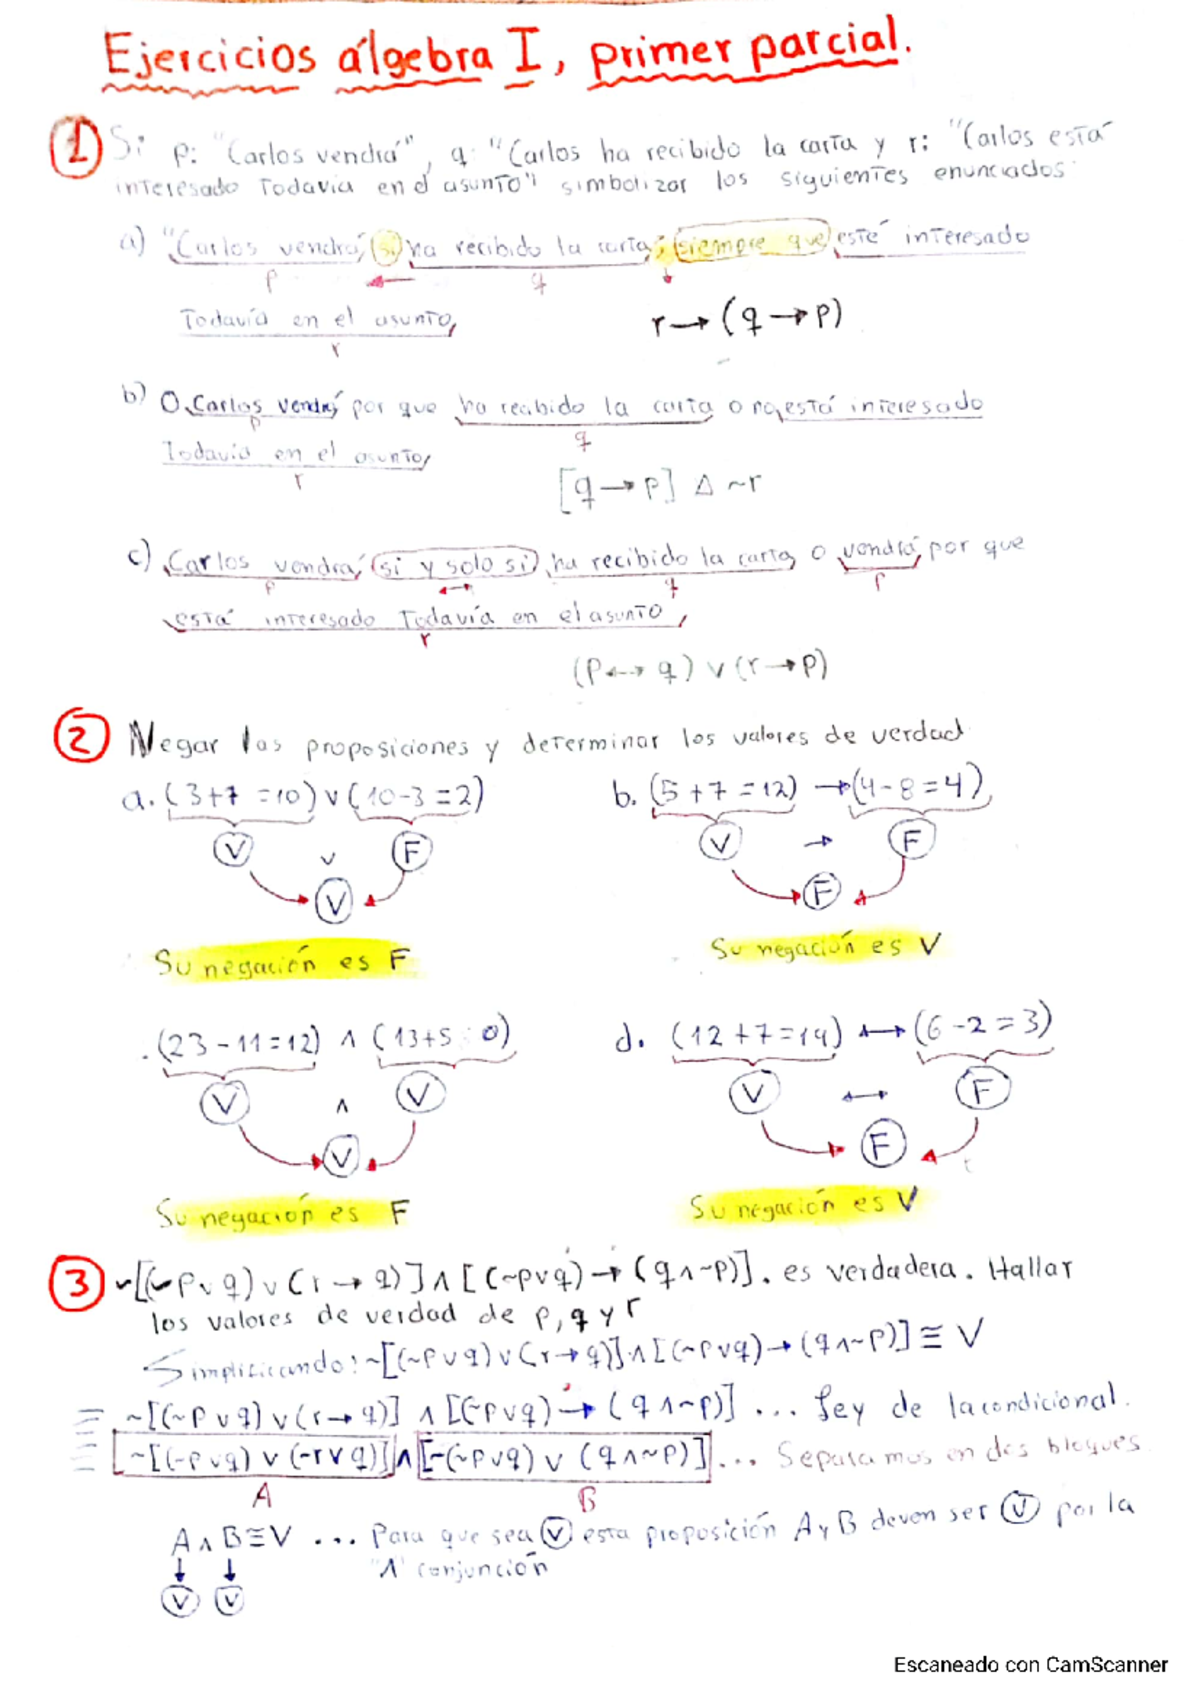 Ejercicios álgebra I, primer parcial.
1 Si p: "Carlos vendrá", q: "Carlos ha recibido la carta y r: "Carlos está
interesado Todavía en el asunto" simbolizar los siguientes enunciados
a) "Carlos vendrá, si ha recibido la carta, siempre que esté interesado
p q
Todavía en el asunto, r → (q → p)
r
b) O Carlos vendrá por que ha recibido la carta o no está interesado
p q
Todavía en el asunto,
r [q → p] Δ ~r
c) Carlos vendrá, si y solo si ha recibido la carta o vendrá, por que
p ↔ q p
está interesado Todavía en el asunto,
r
(p ↔ q) ∨ (r → p)
2 Negar las proposiciones y determinar los valores de verdad
a. (3+7 = 10) ∨ (10-3 = 2) b. (5+7 = 12) → (4-8 = 4)
V ∨ F V → F
V F
Su negación es F Su negación es V
.(23-11=12) ∧ (13+5 0) d. (12+7=19) ↔ (6-2=3)
V ∧ V V ↔ F
V F
Su negación es F Su negación es V
3 ~[(~p∨q)∨(r→q)]∧[(~p∨q)→(q∧~p)]. es verdadera. Hallar
los valores de verdad de p, q y r
Simplificando: ~[(~p∨q)∨(r→q)]∧[(~p∨q)→(q∧~p)] ≡ V
≡ ~[(~p∨q)∨(r→q)] ∧ [(~p∨q)→(q∧~p)] ... Ley de la condicional.
≡ ~[(~p∨q)∨(~r∨q)]∧[~(~p∨q)∨(q∧~p)] ... Separamos en dos bloques
A B
A∧B≡V ... Para que sea V esta proposición A y B deven ser V por la
↓ ↓ "∧" conjunción
V V
Escaneado con CamScanner